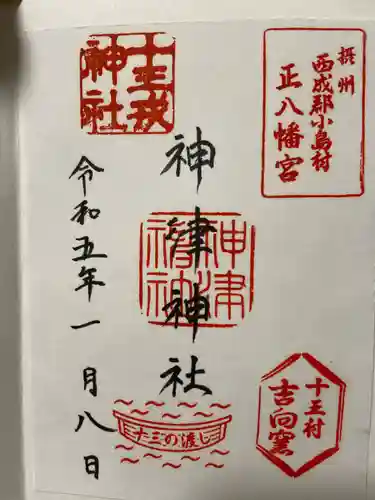 摂州
西成郡小島村
正八幡宮
神津神社
神津神社
十三戎神社
令和五年一月八日
十三の渡し
十三村
吉向窯